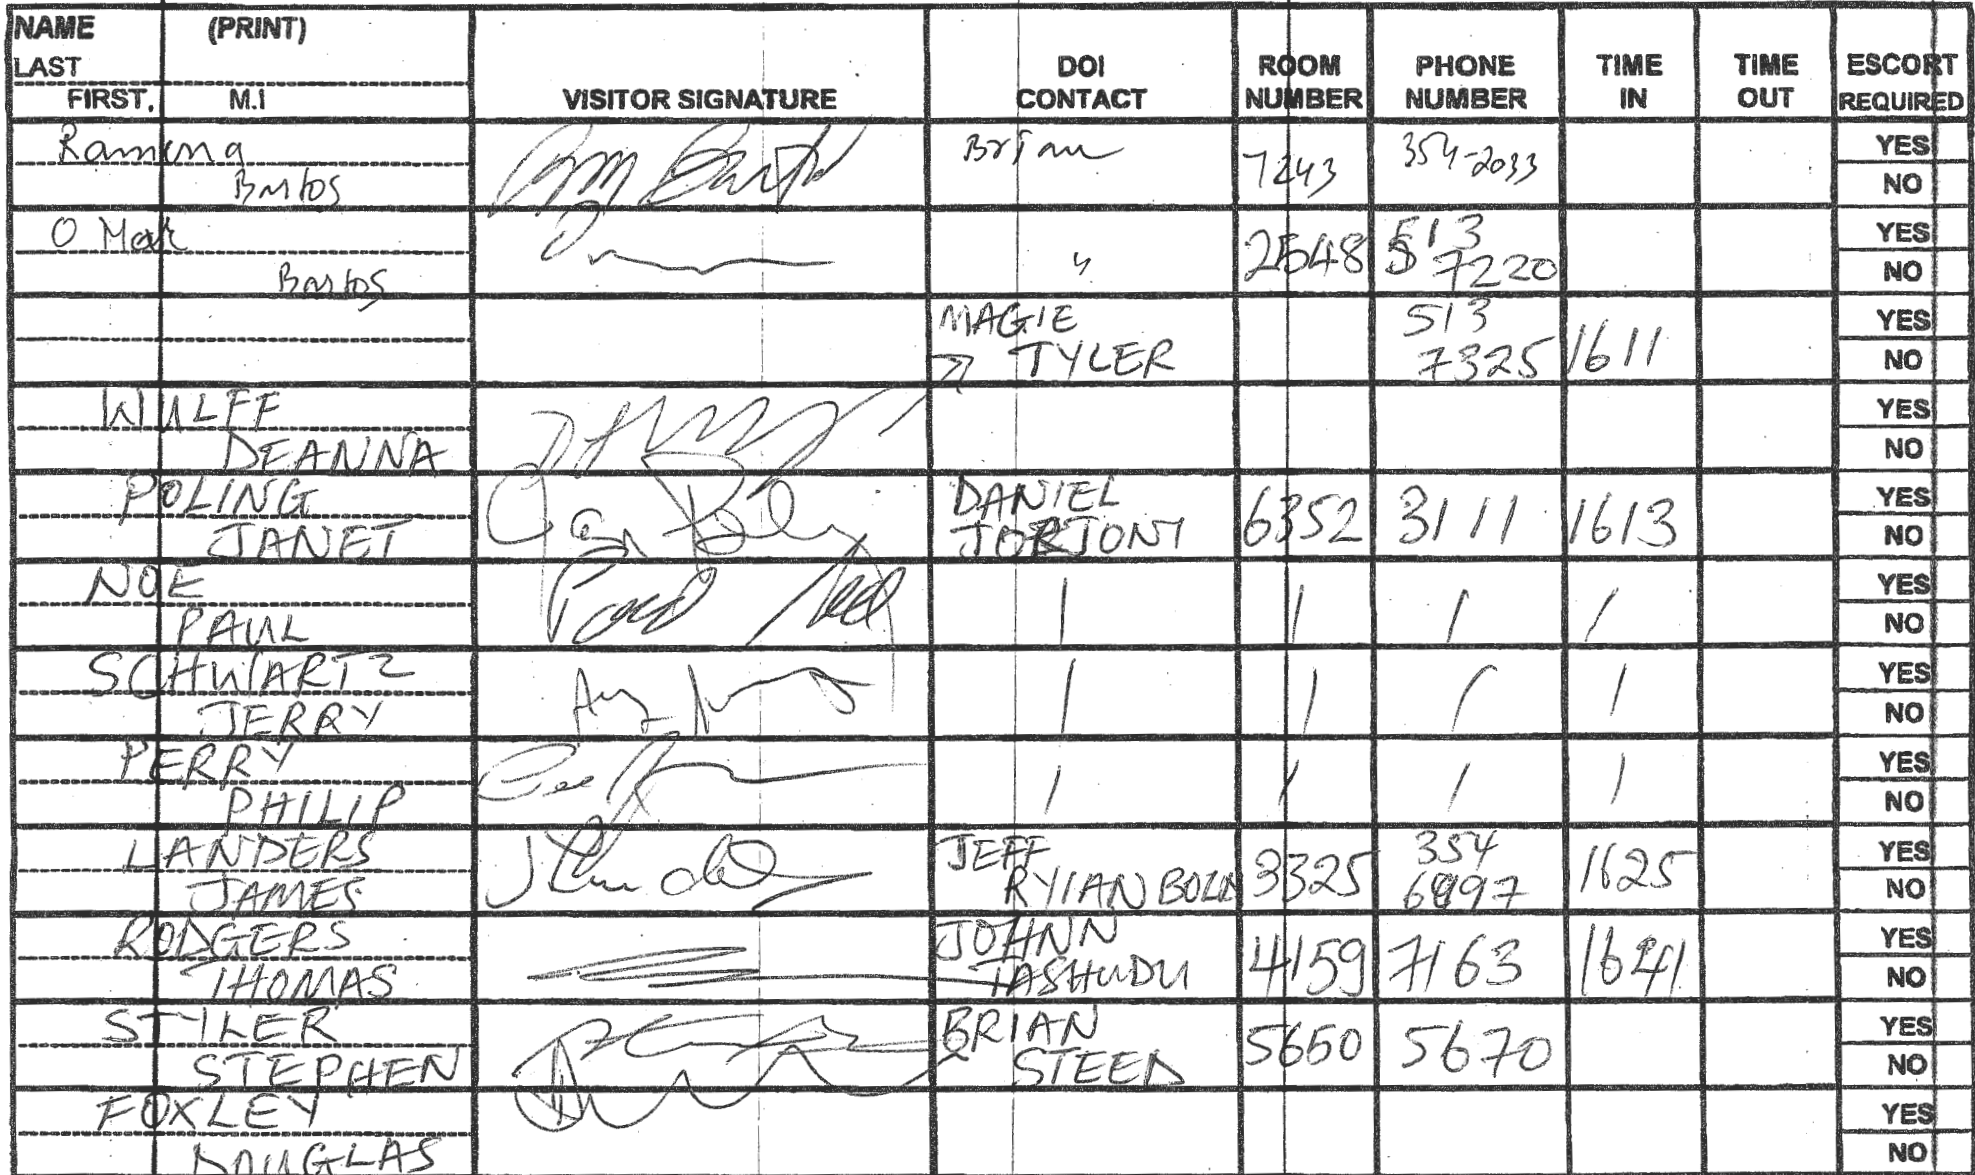 NAME (PRINT)
LAST
FIRST, M.I
VISITOR SIGNATURE
DOI
CONTACT
ROOM
NUMBER
PHONE
NUMBER
TIME
IN
TIME
OUT
ESCORT
REQUIRED
Ramona
Bartos
Brian
7243
354-2033
YES
NO
O Mar
Bartos
"
2548
513
7220
YES
NO
MAGIE
TYLER
513
7325
1611
YES
NO
WULFF
DEANNA
YES
NO
POLING
JANET
DANIEL
JORJONI
6352
3111
1613
YES
NO
NOE
PAUL
YES
NO
SCHWARTZ
JERRY
YES
NO
PERRY
PHILIP
YES
NO
LANDERS
JAMES
JEFF
RYIAN BOLIN
3325
354
6997
1625
YES
NO
RODGERS
THOMAS
JOHNN
TASHUDU
4159
7163
1641
YES
NO
STYLER
STEPHEN
BRIAN
STEED
5650
5670
YES
NO
FOXLEY
DOUGLAS
YES
NO